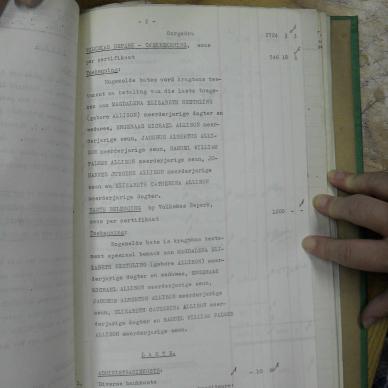 - 2 -
Oorgedra 2724 3 3
per sertifikaat 746 18
Toekenning:
Nogmelde bates word kragtens tes-
tament en betaling van die laste toege-
ken aan MAGDALENA ELIZABETH
(gebore ALLISON) meerderjarige dogter en
weduwee, ENGENAAS MICHAEL ALLISON meer-
derjarige seun, JACOBUS ALBERTUS ALLI-
SON meerderjarige seun, SAMUEL WILLIAM
PALMER ALLISON meerderjarige seun, JO-
HANNES JURGENS ALLISON meerderjarige
seun en ELIZABETH CATHERINA ALLISON
meerderjarige dogter.
VASTE BELEGGING by Volkskas Beperk,
soos per sertifikaat 1000 - -
Toekenning:
Nogmelde bate is kragtens testa-
ment spesiaal bemaak aan MAGDALENA ELI-
ZABETH (gebore ALLISON) meer-
derjarige dogter en weduwee,
MICHAEL ALLISON meerderjarige seun,
JACOBUS ALBERTUS ALLISON meerderjarige
seun, ELIZABETH CATHERINA ALLISON meer-
derjarige dogter en SAMUEL WILLIAM PALMER
ALLISON meerderjarige seun.
L A S T E.
ADMINISTRASIEKOSTE:
Diverse bankkoste - 10